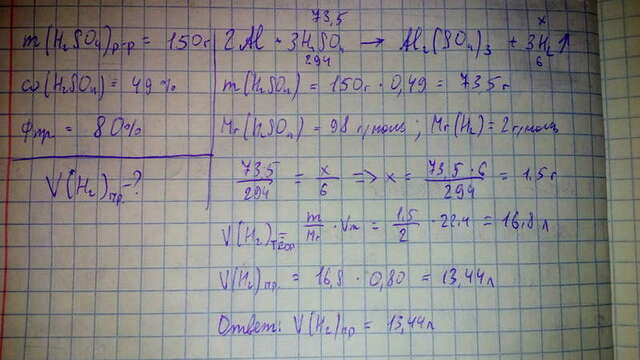 m(H₂SO₄)р-р = 150г
ω(H₂SO₄) = 49%
φпр = 80%
V(H₂)пр - ?
73,5 x
2Al + 3H₂SO₄ → Al₂(SO₄)₃ + 3H₂↑
294 6
m(H₂SO₄) = 150г · 0,49 = 73,5г
Mr(H₂SO₄) = 98г/моль; Mr(H₂) = 2г/моль
73,5/294 = x/6 => x = 73,5·6/294 = 1,5г
V(H₂)теор = m/Mr · Vm = 1,5/2 · 22,4 = 16,8л
V(H₂)пр = 16,8 · 0,80 = 13,44л
Ответ: V(H₂)пр = 13,44л